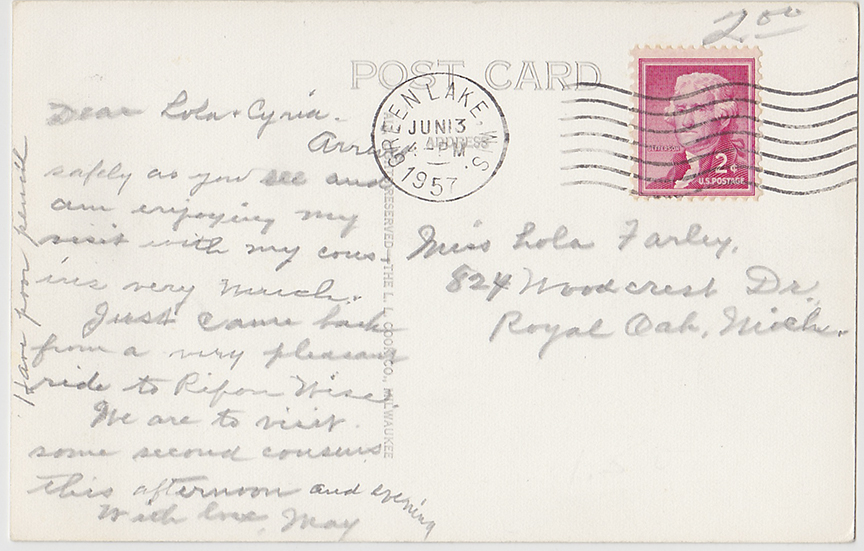 2.00
POST CARD
Dear Lola & Cyria.
Arrived
safely as you see and
am enjoying my
visit with my cous-
ins very much.
Just came back
from a very pleasant
ride to Ripon Wisc.
We are to visit
some second cousins
this afternoon and evening
With love, May
Have poor pencil
GREEN LAKE, WIS.
JUN 13
PM
1957
ADDRESS
RESERVED—THE L. L. COOK CO., MILWAUKEE
JEFFERSON
2¢
U.S. POSTAGE
Miss Lola Farley,
824 Woodcrest Dr.
Royal Oak, Mich.